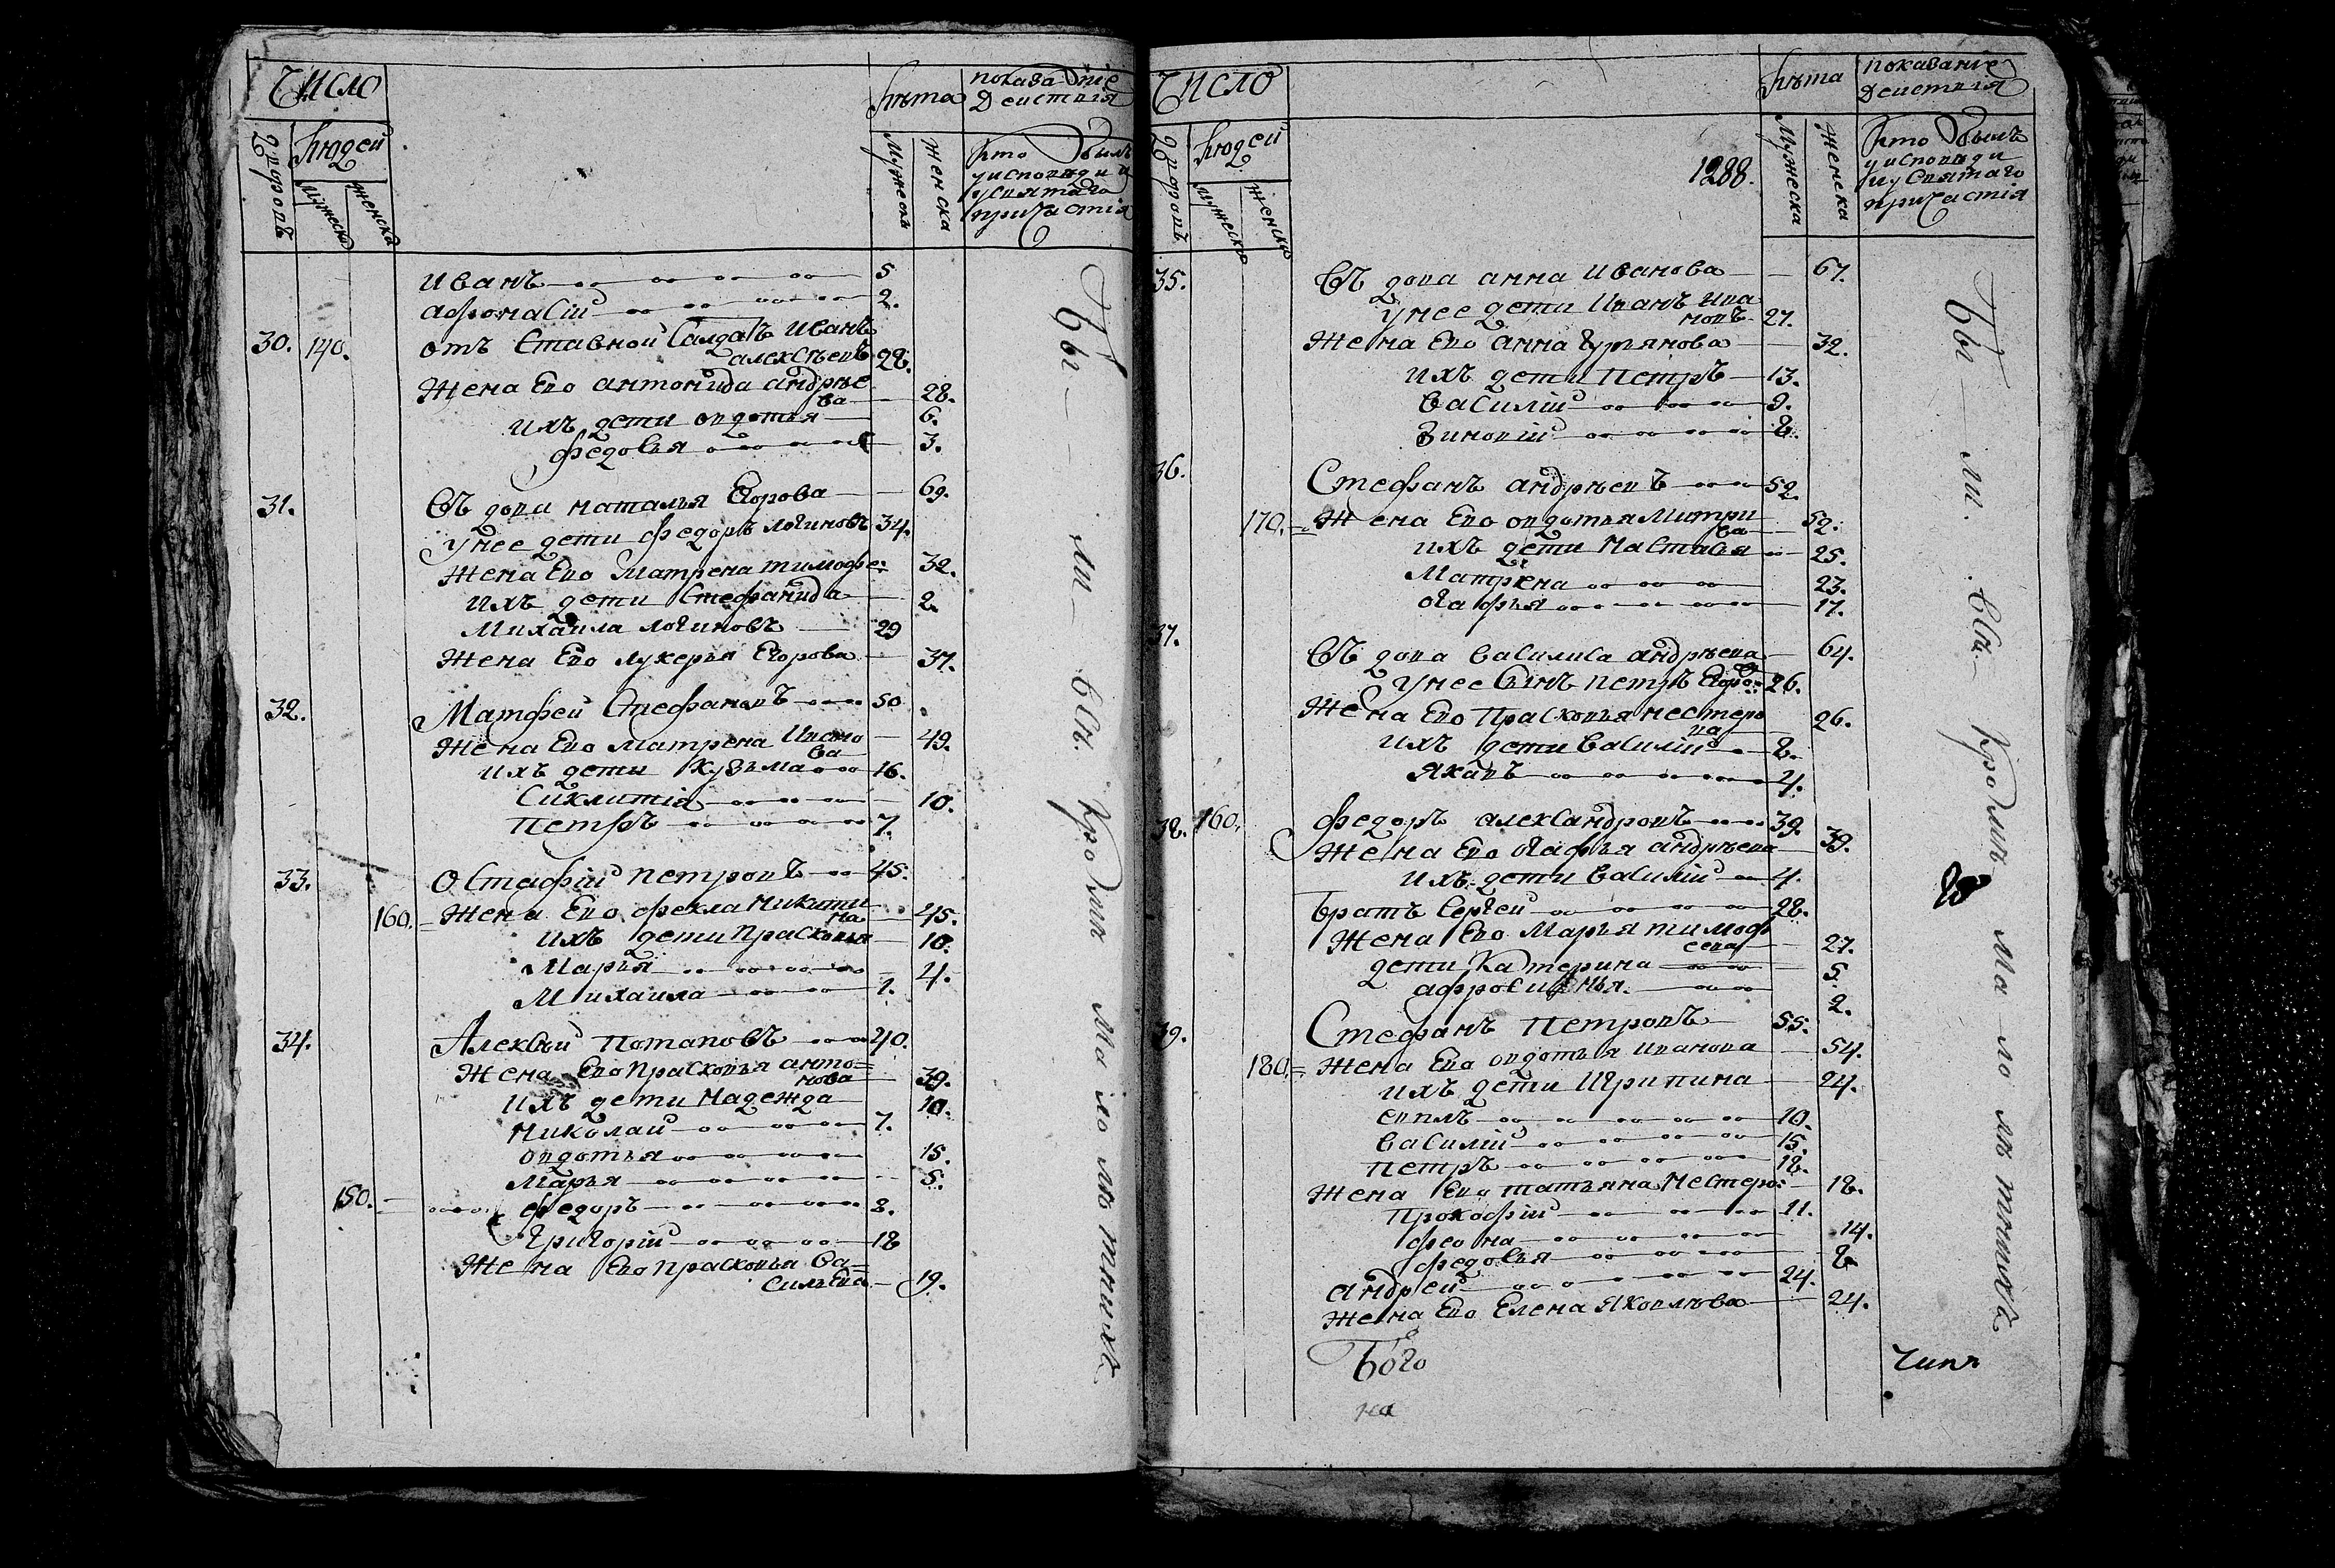 Число
лѣта
показание
Действия
Дворовъ
людей
мужеска
женска
Мужеска
Женска
кто былъ
у исповѣди и
у святаго
причастия
иванъ 5
афонасiй 2.
30. 140. отъ ставной салдатъ иванъ
алексѣевъ 28.
жена ево антонида андрѣе
ва 28.
ихъ дети овдотья 6.
федосья 3.
31. въ дова наталья егорова 69.
у нее дети федоръ логиновъ 34.
жена ево матрена тимофе: 32.
ихъ дети стефанида 2.
михаила логиновъ 29
жена ево лукерья егорова 37.
32. Матфей стефановъ 50
жена ево матрена ивано
ва 49.
ихъ дети кузьма 16.
сиклитiя 10.
петръ 7.
33. остафiй петровъ 45.
160. жена ево фекла никити
на 45.
ихъ дети прасковья 10.
марья 4.
михаила 1.
34. Алексѣй потаповъ 40.
жена ево прасковья анто=
нова 39.
ихъ дети надежда 10.
николай 7.
овдотья 15.
марья 5.
150. федоръ 8.
григорiй 18
жена ево прасковья ва=
сильева 19.
Бы — ли — всѣ. кромѣ ма ло лѣ тныхъ
Число
лѣта
показание
Действия
Дворовъ
людей
мужеска
женска
1288.
Мужеска
Женска
кто былъ
у исповѣди
и у святаго
причастiя
35. въ дова анна иванова 67.
у нее дети иванъ ива
новъ 27.
жена ево анна гурьянова 32.
ихъ дети петръ 13.
василiй 9.
зиновiй 8.
36. Стефанъ андрѣевъ 52.
170. жена ево овдотья митри
ва 52.
ихъ дети настасья 25.
матрена 23.
огафья 17.
37. въ дова василиса андрѣева 64.
у нее сынъ петръ егоро: 26.
жена ево прасковья нестеро
ва 26.
ихъ дети василiй 8.
яковъ 4.
38. 160. федоръ александровъ 39.
жена ево огафья андрѣева 39.
ихъ дети василiй 4.
братъ сергей 28.
жена ево марья тимоф
еева 27.
дети катерина 5.
афросинья 2.
39. Стефанъ петровъ 55.
180. жена ево овдотья иванова 54.
ихъ дети игрипина 24.
10.
василiй 15.
петръ 18.
жена ево татьяна нестеро: 18.
прокофiй 11.
14.
федосья 8
андрей 24.
жена ево елена яковлѣва 24.
Бы — ли. всѣ — кромѣ ма ло лѣ тныхъ
Бого
на